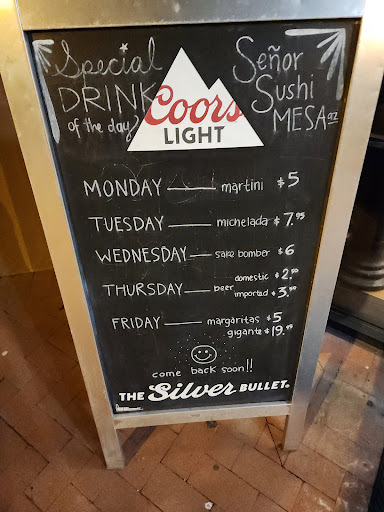 Special
DRINK
of the day
Señor
Sushi
MESA az
Coors
LIGHT
MONDAY — martini $5
TUESDAY — michelada $7.95
WEDNESDAY — sake bomber $6
THURSDAY — beer domestic $2.90
imported $3.90
FRIDAY — margaritas $5
gigante $19.99
come back soon!!
THE Silver BULLET.